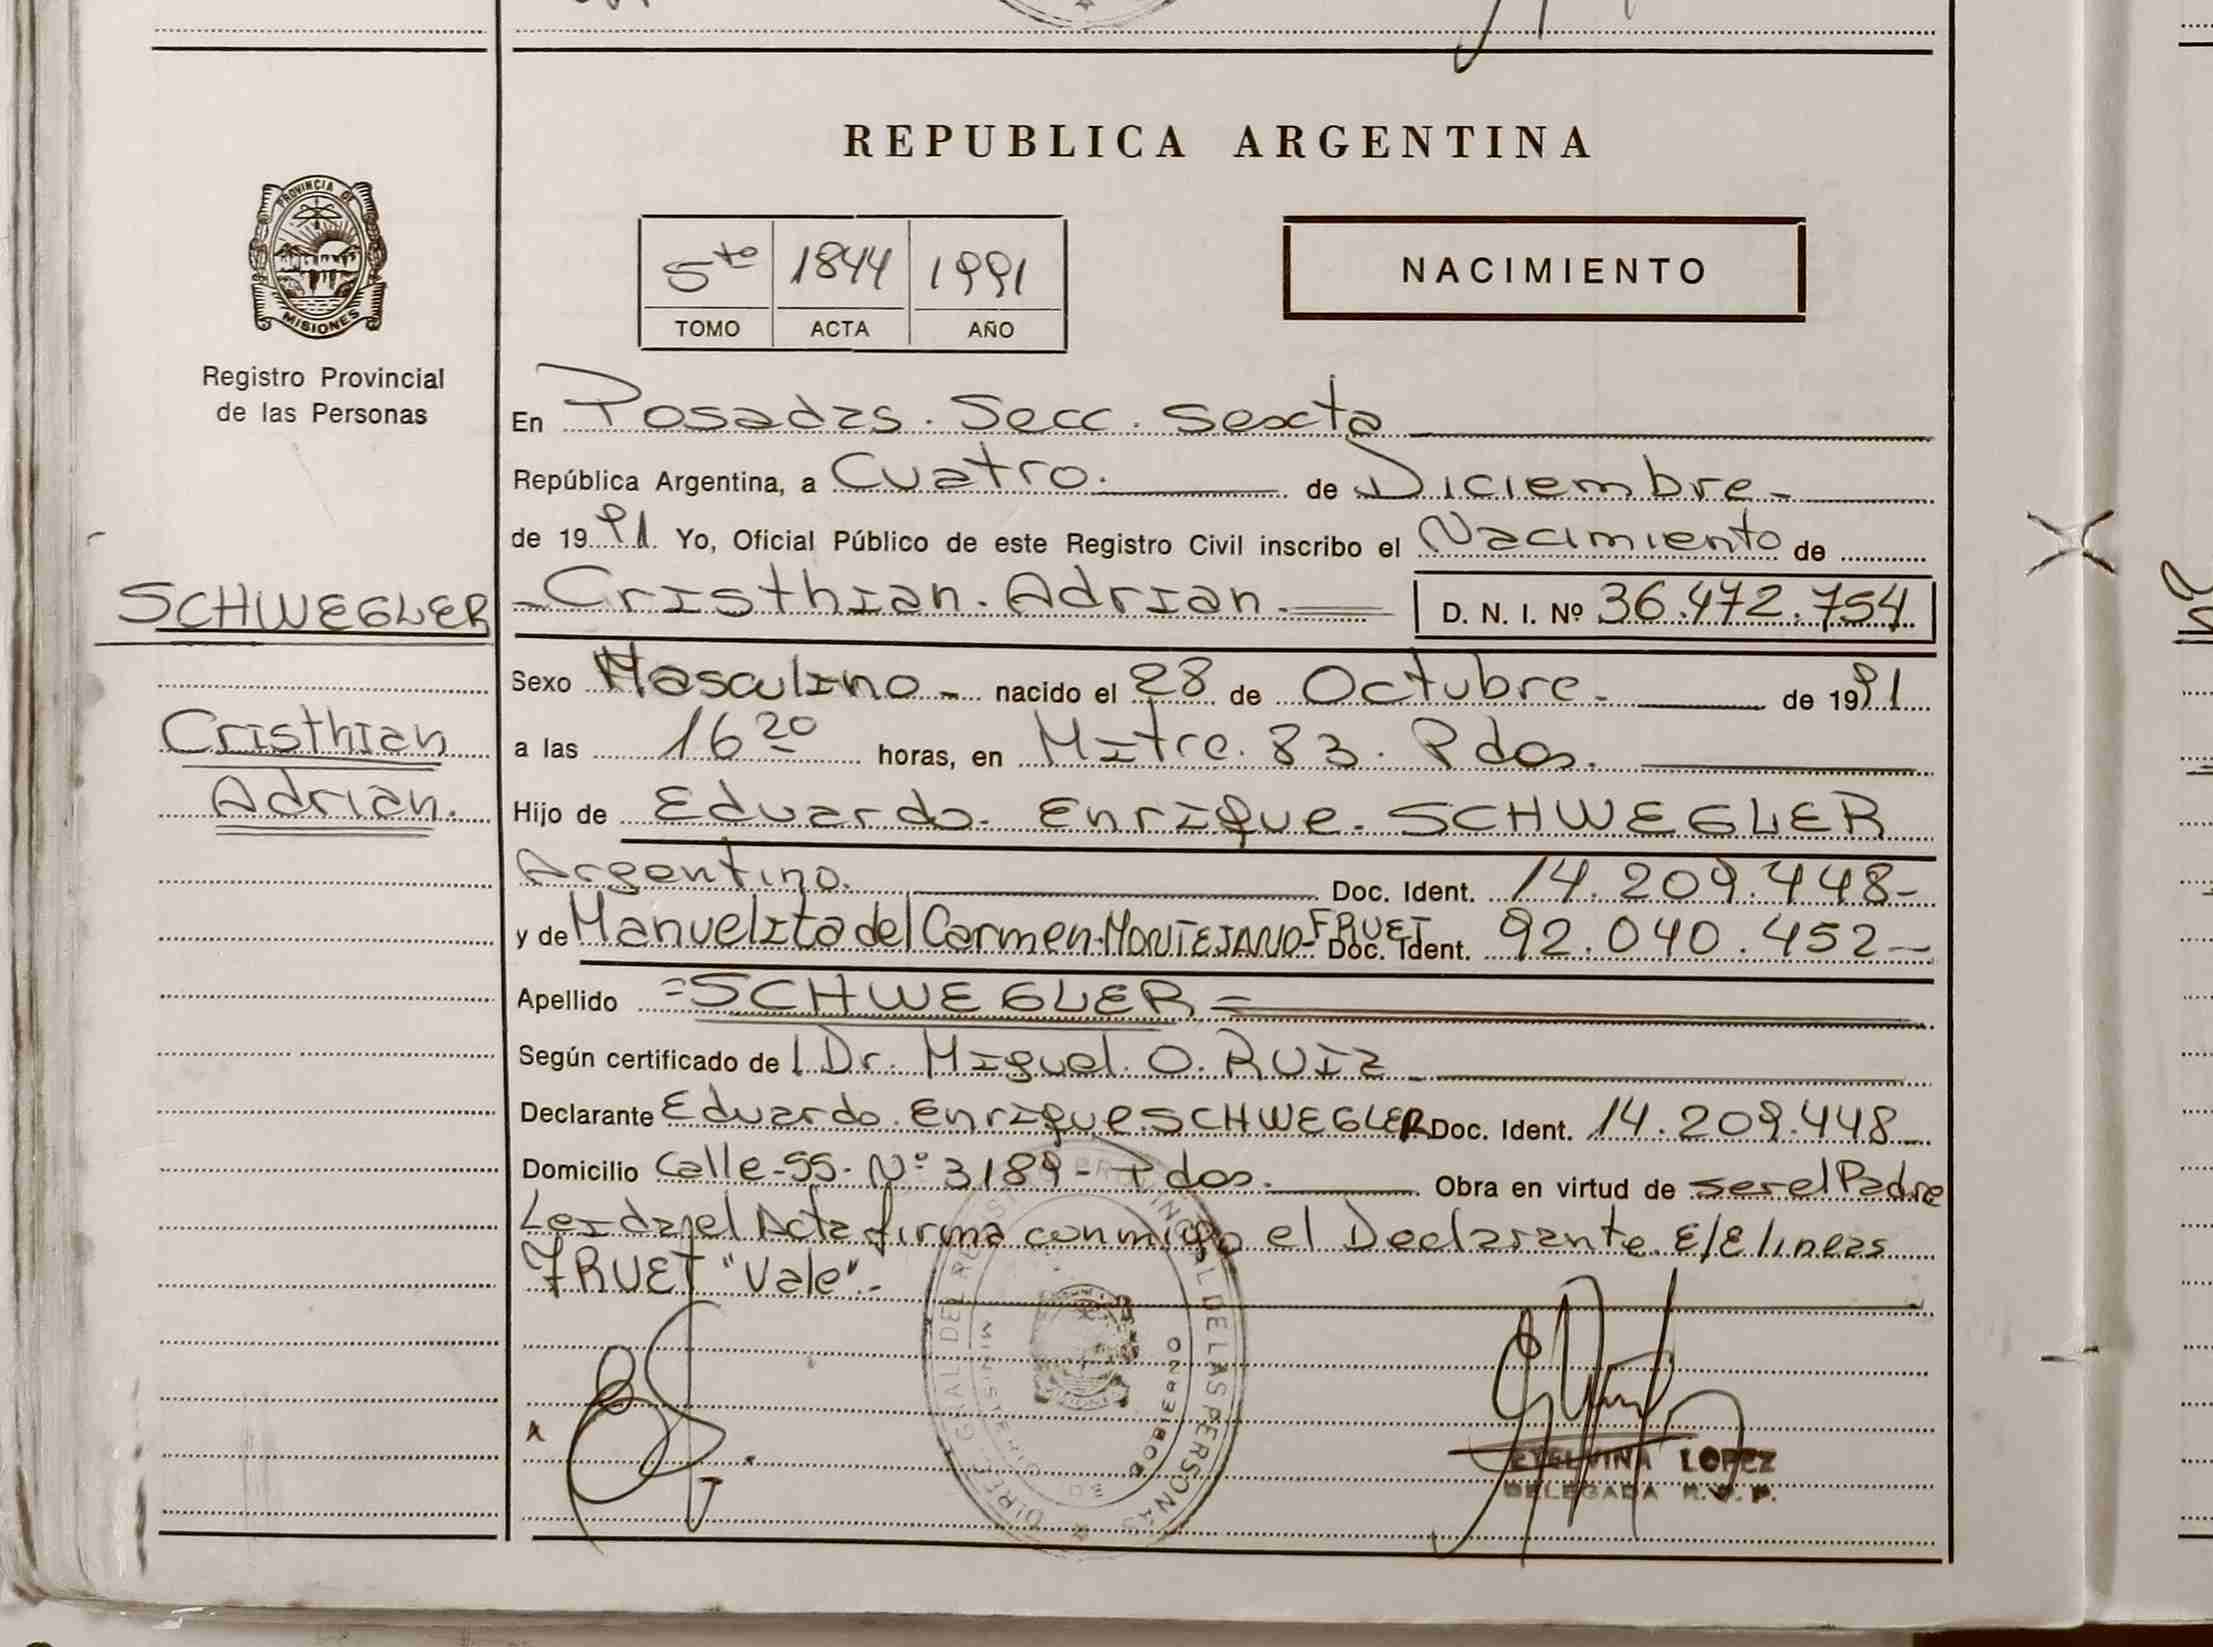 REPUBLICA ARGENTINA
PROVINCIA DE
MISIONES
Registro Provincial
de las Personas
5to 1844 1991
TOMO ACTA AÑO
NACIMIENTO
En Posadas. Secc. Sexta
República Argentina, a Cuatro. de Diciembre-
de 1991 Yo, Oficial Público de este Registro Civil inscribo el Nacimiento de
SCHWEGLER
-Cristhian. Adrian. D. N. I. Nº 36.472.754
Sexo Masculino- nacido el 28 de Octubre- de 1991
Cristhian
a las 16 20 horas, en Mitre. 83. Pdas.
Adrian.
Hijo de Eduardo. Enrique. SCHWEGLER
Argentino. Doc. Ident. 14.209.448-
y de Manuelita del Carmen. MONTEJANO- FRUET Doc. Ident. 92.040.452-
Apellido =SCHWEGLER=
Según certificado de Dr. Miguel. O. RUIZ
Declarante Eduardo. Enrique. SCHWEGLER Doc. Ident. 14.209.448
Domicilio Calle-55- Nº 3189- Pdas. Obra en virtud de ser el Padre
Leida el Acta firma conmigo el Declarante. E/E lineas
FRUET "Vale".-
DIREC. GRAL DEL REGISTRO PROVINCIAL DE LAS PERSONAS
MINISTERIO DE GOBIERNO
ETELVINA LOPEZ
DELEGADA R. P. P.